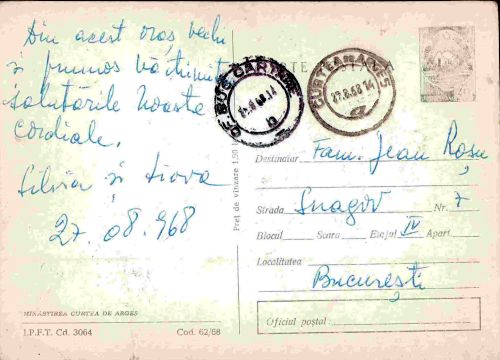 Din acest oraș vechi
și frumos vă trimit
salutările noastre
cordiale.
Silvia și
27.08.968
MÎNĂSTIREA CURTEA DE ARGEȘ
I.P.F.T. Cd. 3064
Cod. 62/68
Preț de vînzare 1,50 lei
CARTE POȘTALĂ
OF. BUC. CARTARE
CURTEA DE ARGEȘ
27.8.68.14
a
Destinatar Fam. Jean Roșu
Strada Snagov Nr. 7
Blocul Scara Etajul IV Apart.
Localitatea
București
Oficiul poștal: